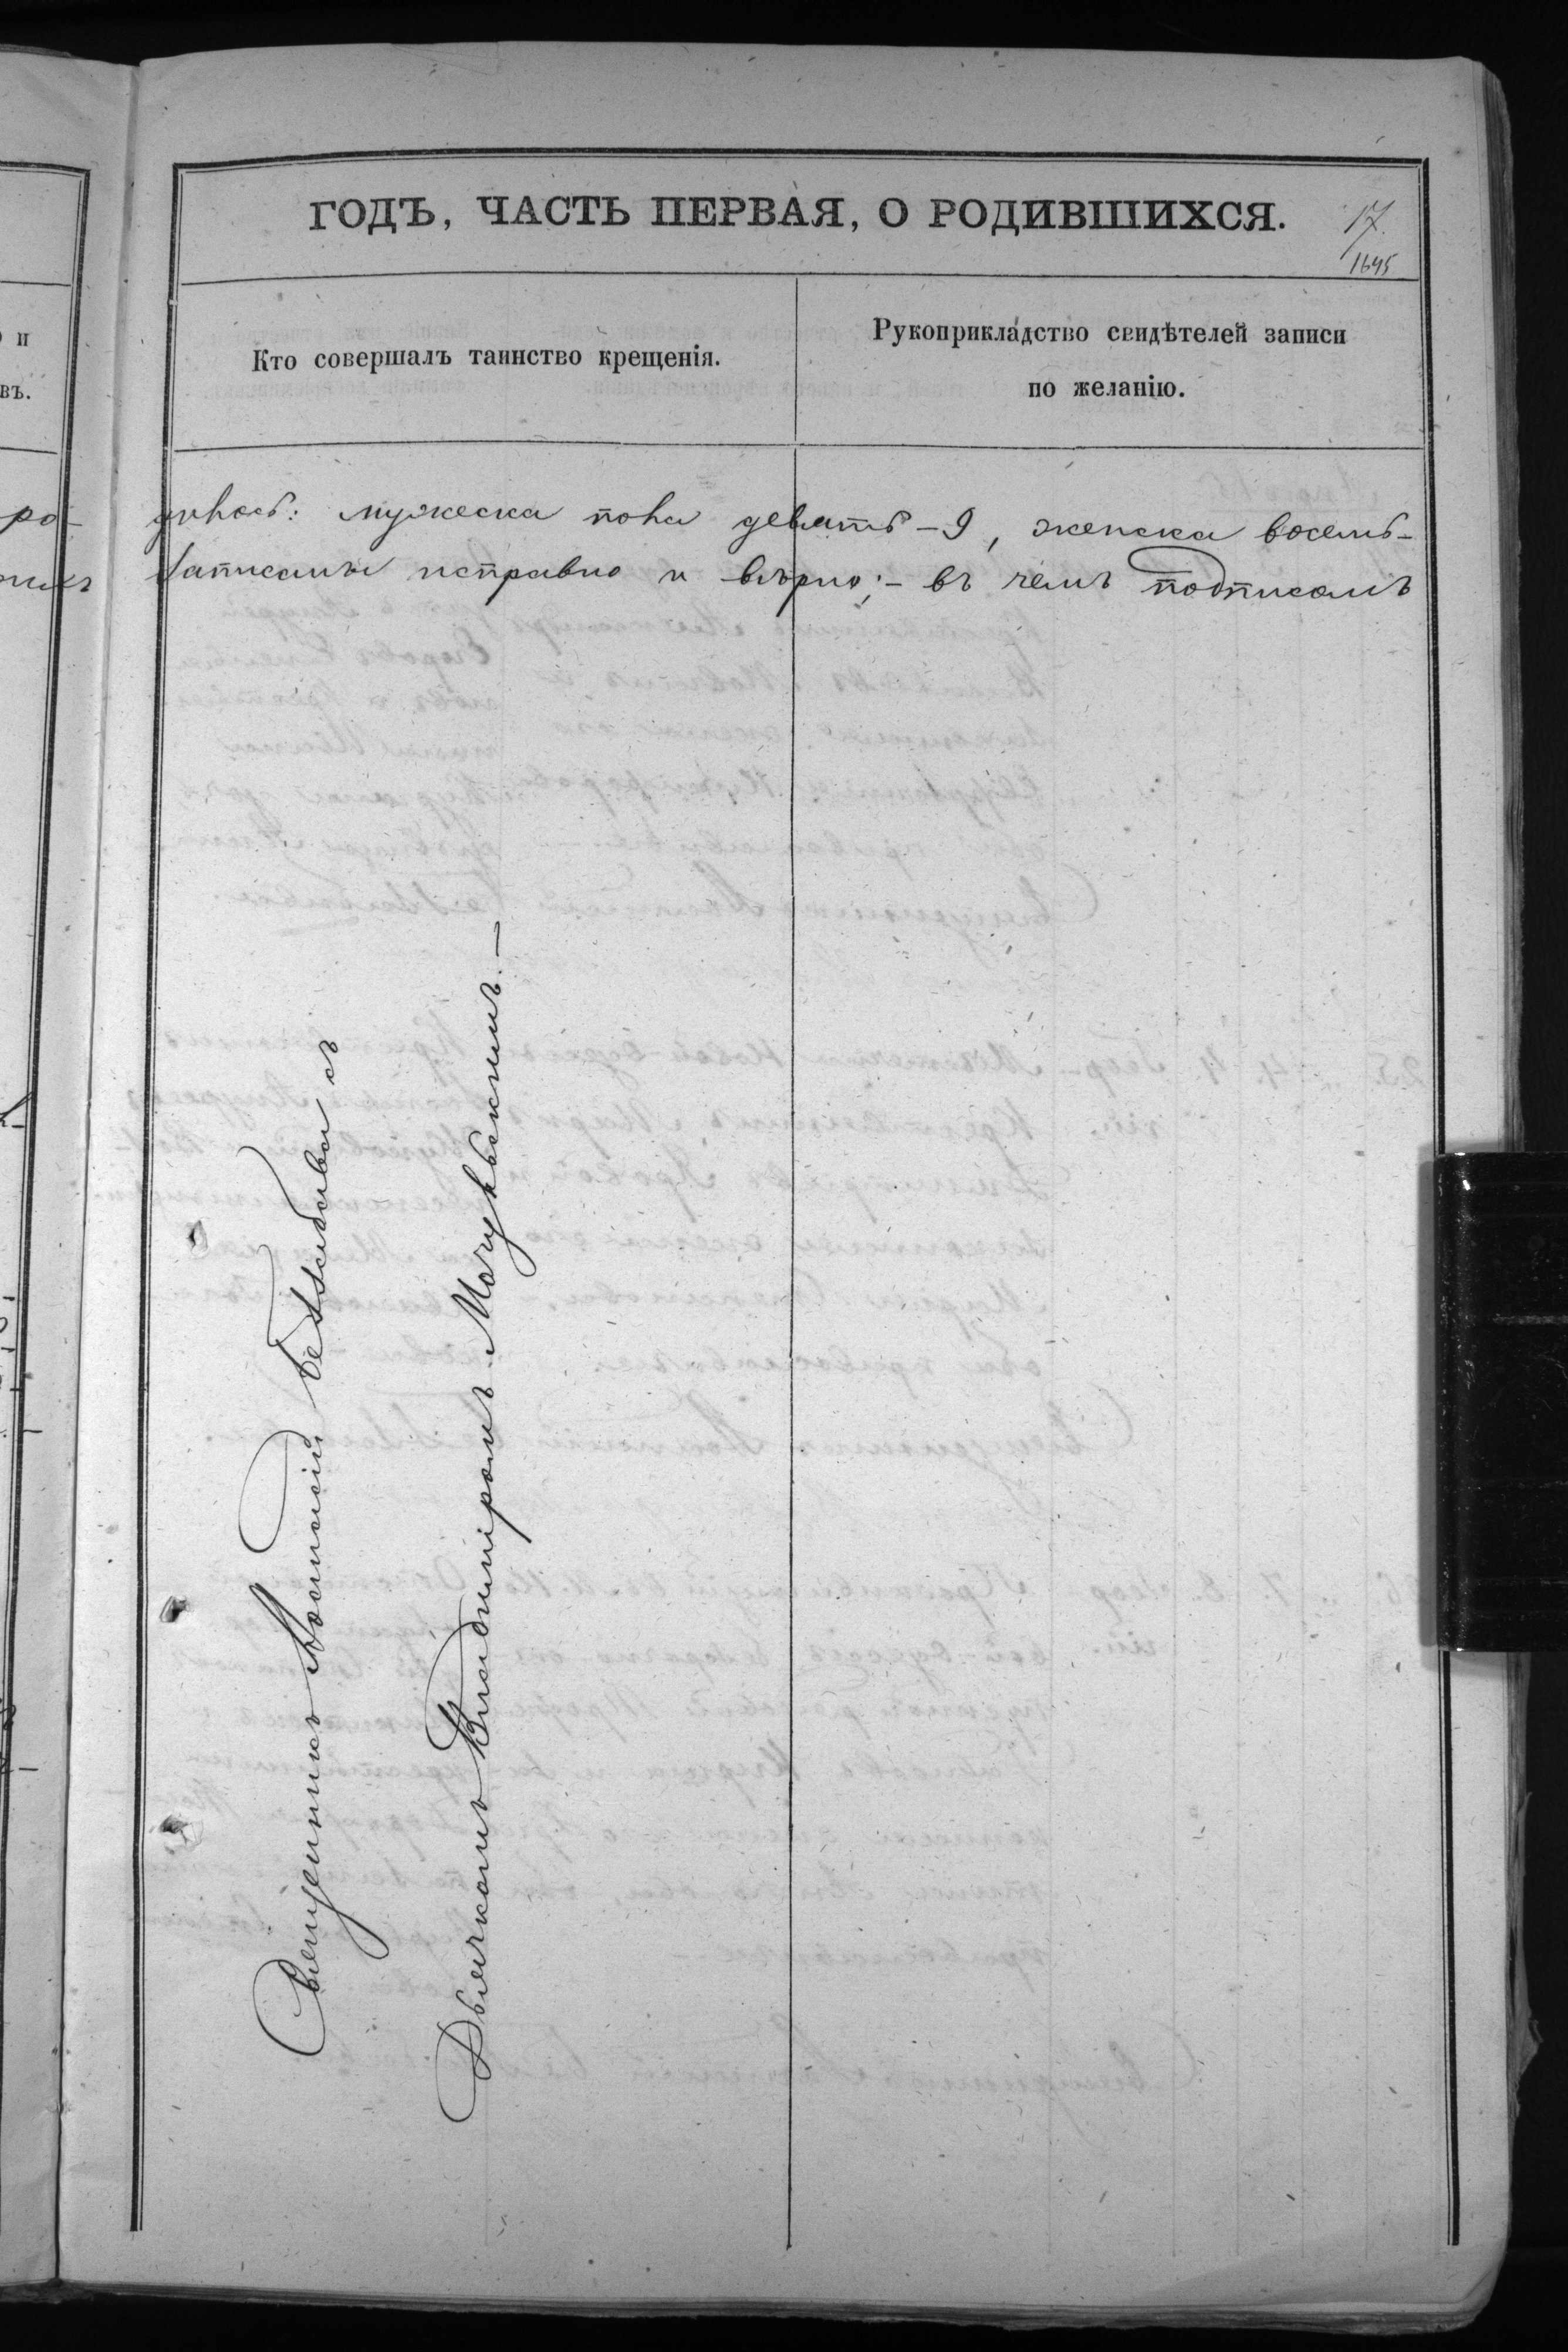 ГОДЪ, ЧАСТЬ ПЕРВАЯ, О РОДИВШИХСЯ.
17.
1645
Кто совершалъ таинство крещенія.
Рукоприкладство свидѣтелей записи
по желанію.
дилось: мужеска пола девять – 9, женска восемь –
записаны исправно и вѣрно; – въ чемъ подписомъ
Священникъ Абезабава съ
Дьячкомъ Владиміромъ Мочульскимъ. –